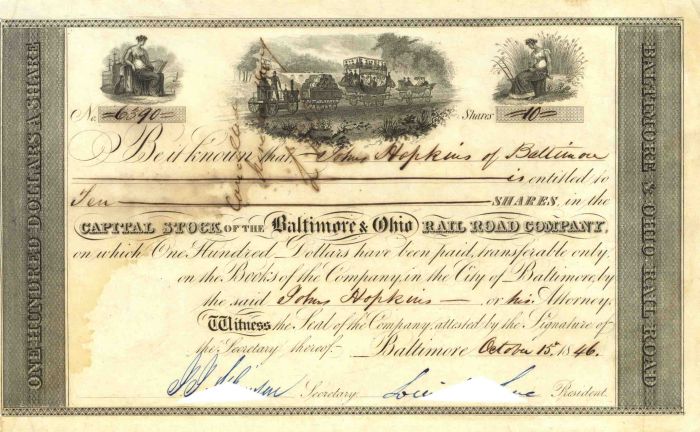 No. 6390
Shares 10
ONE HUNDRED DOLLARS A SHARE
BALTIMORE & OHIO RAIL ROAD
Be it known that Johns Hopkins of Baltimore
is entitled to
Ten SHARES, in the
CAPITAL STOCK OF THE Baltimore & Ohio RAIL ROAD COMPANY,
on which One Hundred Dollars have been paid, transferable only
on the Books of the Company, in the City of Baltimore, by
the said Johns Hopkins or his Attorney.
Witness the Seal of the Company, attested by the Signature of
the Secretary thereof. Baltimore October 15th 1846.
Secretary President